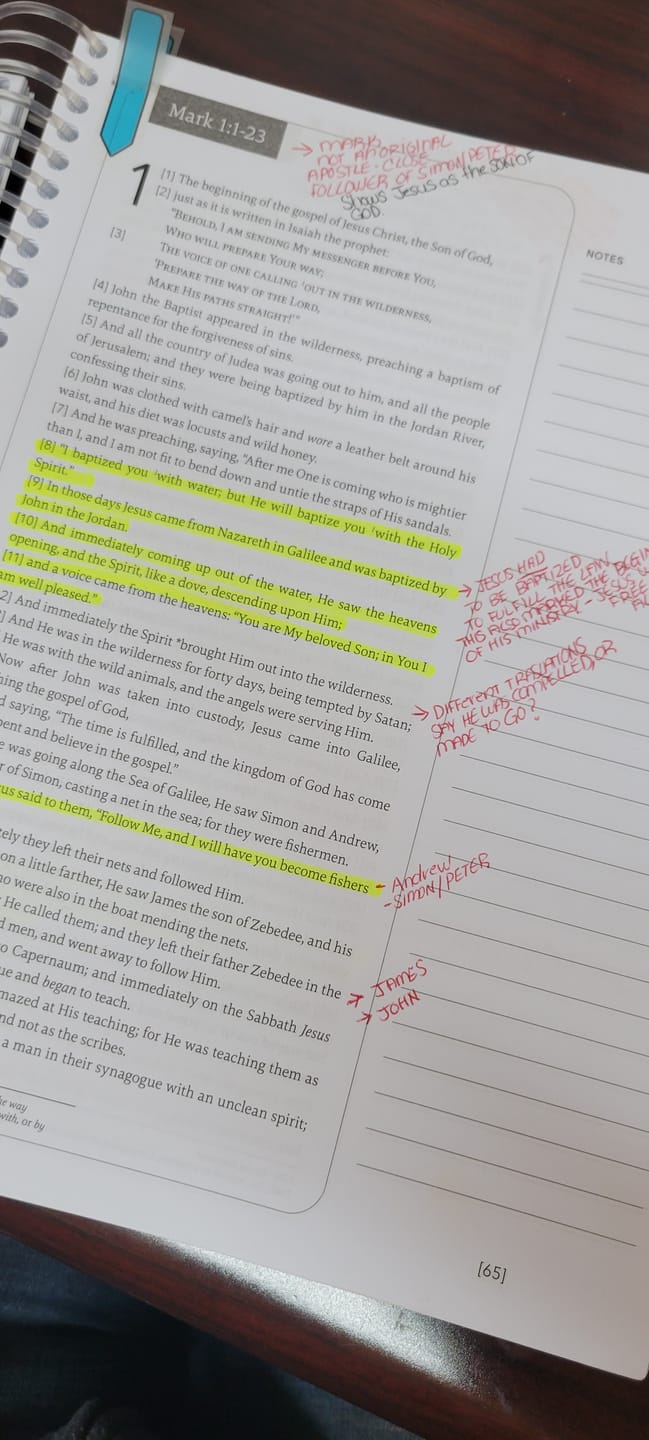 Mark 1:1-23
→ MARK
NOT AN ORIGINAL
APOSTLE - CLOSE
FOLLOWER OF SIMON/PETER
Shows Jesus as the SON OF
GOD.
NOTES
1
[1] The beginning of the gospel of Jesus Christ, the Son of God,
[2] just as it is written in Isaiah the prophet:
"BEHOLD, I AM SENDING MY MESSENGER BEFORE YOU,
WHO WILL PREPARE YOUR WAY;
[3] THE VOICE OF ONE CALLING ¹OUT IN THE WILDERNESS,
'PREPARE THE WAY OF THE LORD,
MAKE HIS PATHS STRAIGHT!'"
[4] John the Baptist appeared in the wilderness, preaching a baptism of
repentance for the forgiveness of sins.
[5] And all the country of Judea was going out to him, and all the people
of Jerusalem; and they were being baptized by him in the Jordan River,
confessing their sins.
[6] John was clothed with camel's hair and wore a leather belt around his
waist, and his diet was locusts and wild honey.
[7] And he was preaching, saying, "After me One is coming who is mightier
than I, and I am not fit to bend down and untie the straps of His sandals.
[8] "I baptized you ¹with water; but He will baptize you ¹with the Holy
Spirit."
[9] In those days Jesus came from Nazareth in Galilee and was baptized by
John in the Jordan.
[10] And immediately coming up out of the water, He saw the heavens
opening, and the Spirit, like a dove, descending upon Him;
[11] and a voice came from the heavens: "You are My beloved Son; in You I
am well pleased."
2] And immediately the Spirit *brought Him out into the wilderness.
] And He was in the wilderness for forty days, being tempted by Satan;
He was with the wild animals, and the angels were serving Him.
Now after John was taken into custody, Jesus came into Galilee,
hing the gospel of God,
d saying, "The time is fulfilled, and the kingdom of God has come
pent and believe in the gospel."
e was going along the Sea of Galilee, He saw Simon and Andrew,
r of Simon, casting a net in the sea; for they were fishermen.
us said to them, "Follow Me, and I will have you become fishers
tely they left their nets and followed Him.
on a little farther, He saw James the son of Zebedee, and his
ho were also in the boat mending the nets.
He called them; and they left their father Zebedee in the
d men, and went away to follow Him.
o Capernaum; and immediately on the Sabbath Jesus
ue and began to teach.
mazed at His teaching; for He was teaching them as
nd not as the scribes.
a man in their synagogue with an unclean spirit;
he way
with, or by
→ JESUS HAD
TO BE BAPTIZED
TO FULFILL THE LAW.
THIS ALSO MARKED THE BEGIN
OF HIS MINISTRY - JESUS
FREE
→ DIFFERENT TRASLATIONS
SAY HE WAS COMPELLED, OR
MADE TO GO?
- Andrew
- SIMON/PETER
→ JAMES
→ JOHN
[65]